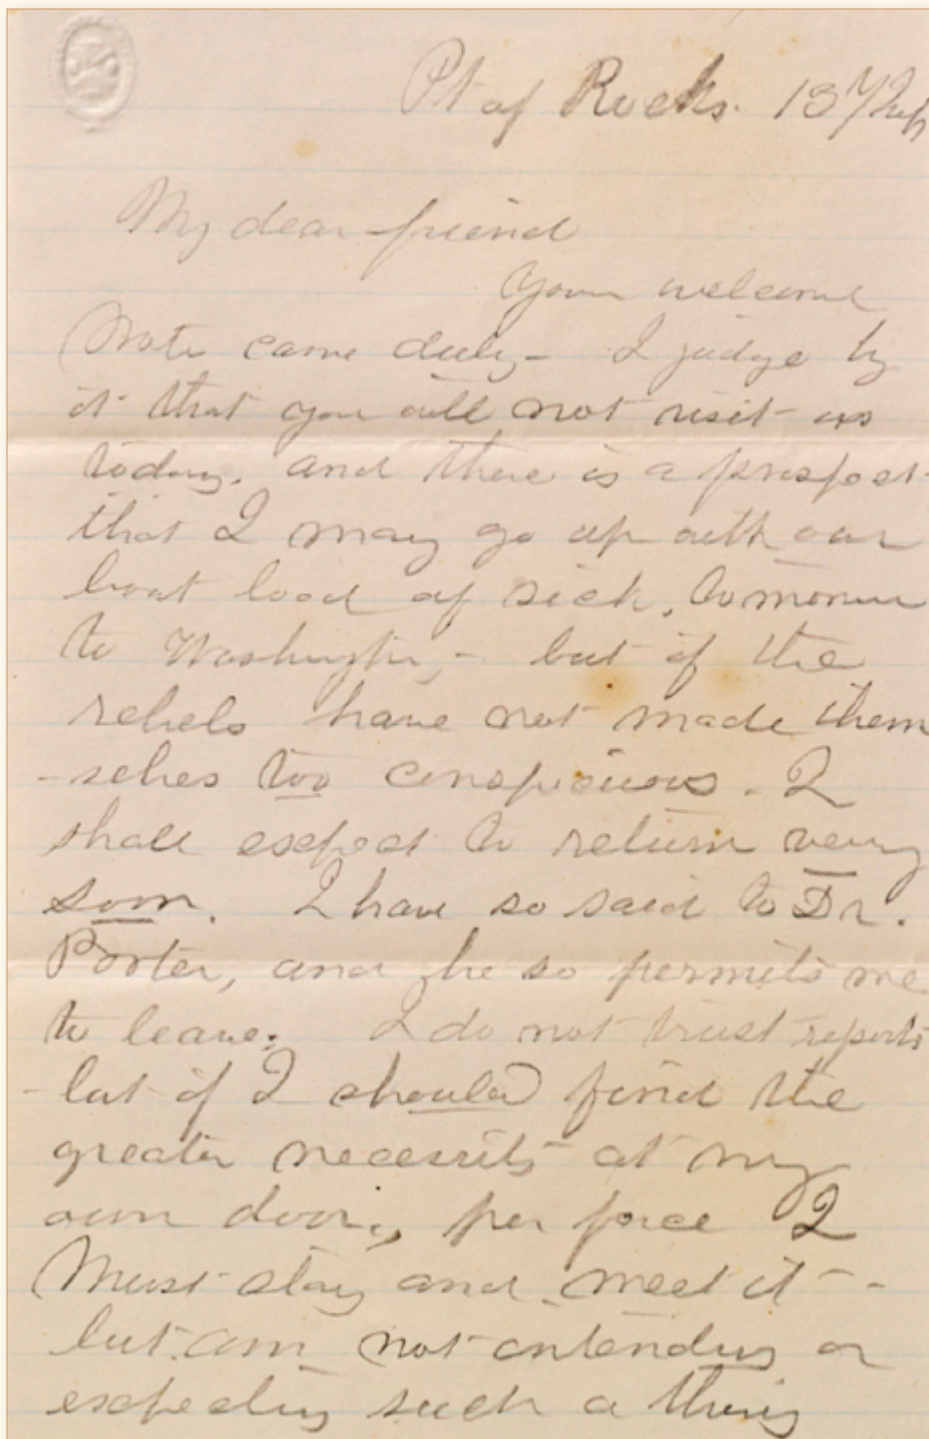 Pt of Rocks. 13
My dear friend
Your welcome
Note came duly - I judge by
it that you will not visit us
today. and there is a prospect
that I may go up with our
boat load of sick, tomorrow
to Washington, - but if the
rebels have not made them
-selves too conspicuous. I
shall expect to return very
soon. I have so said to Dr.
Porter, and he so permits me
to leave. I do not trust reports
- but if I should find the
greater necessity at my
own door, per force I
Must stay and meet it - -
but am not intending or
expecting such a thing